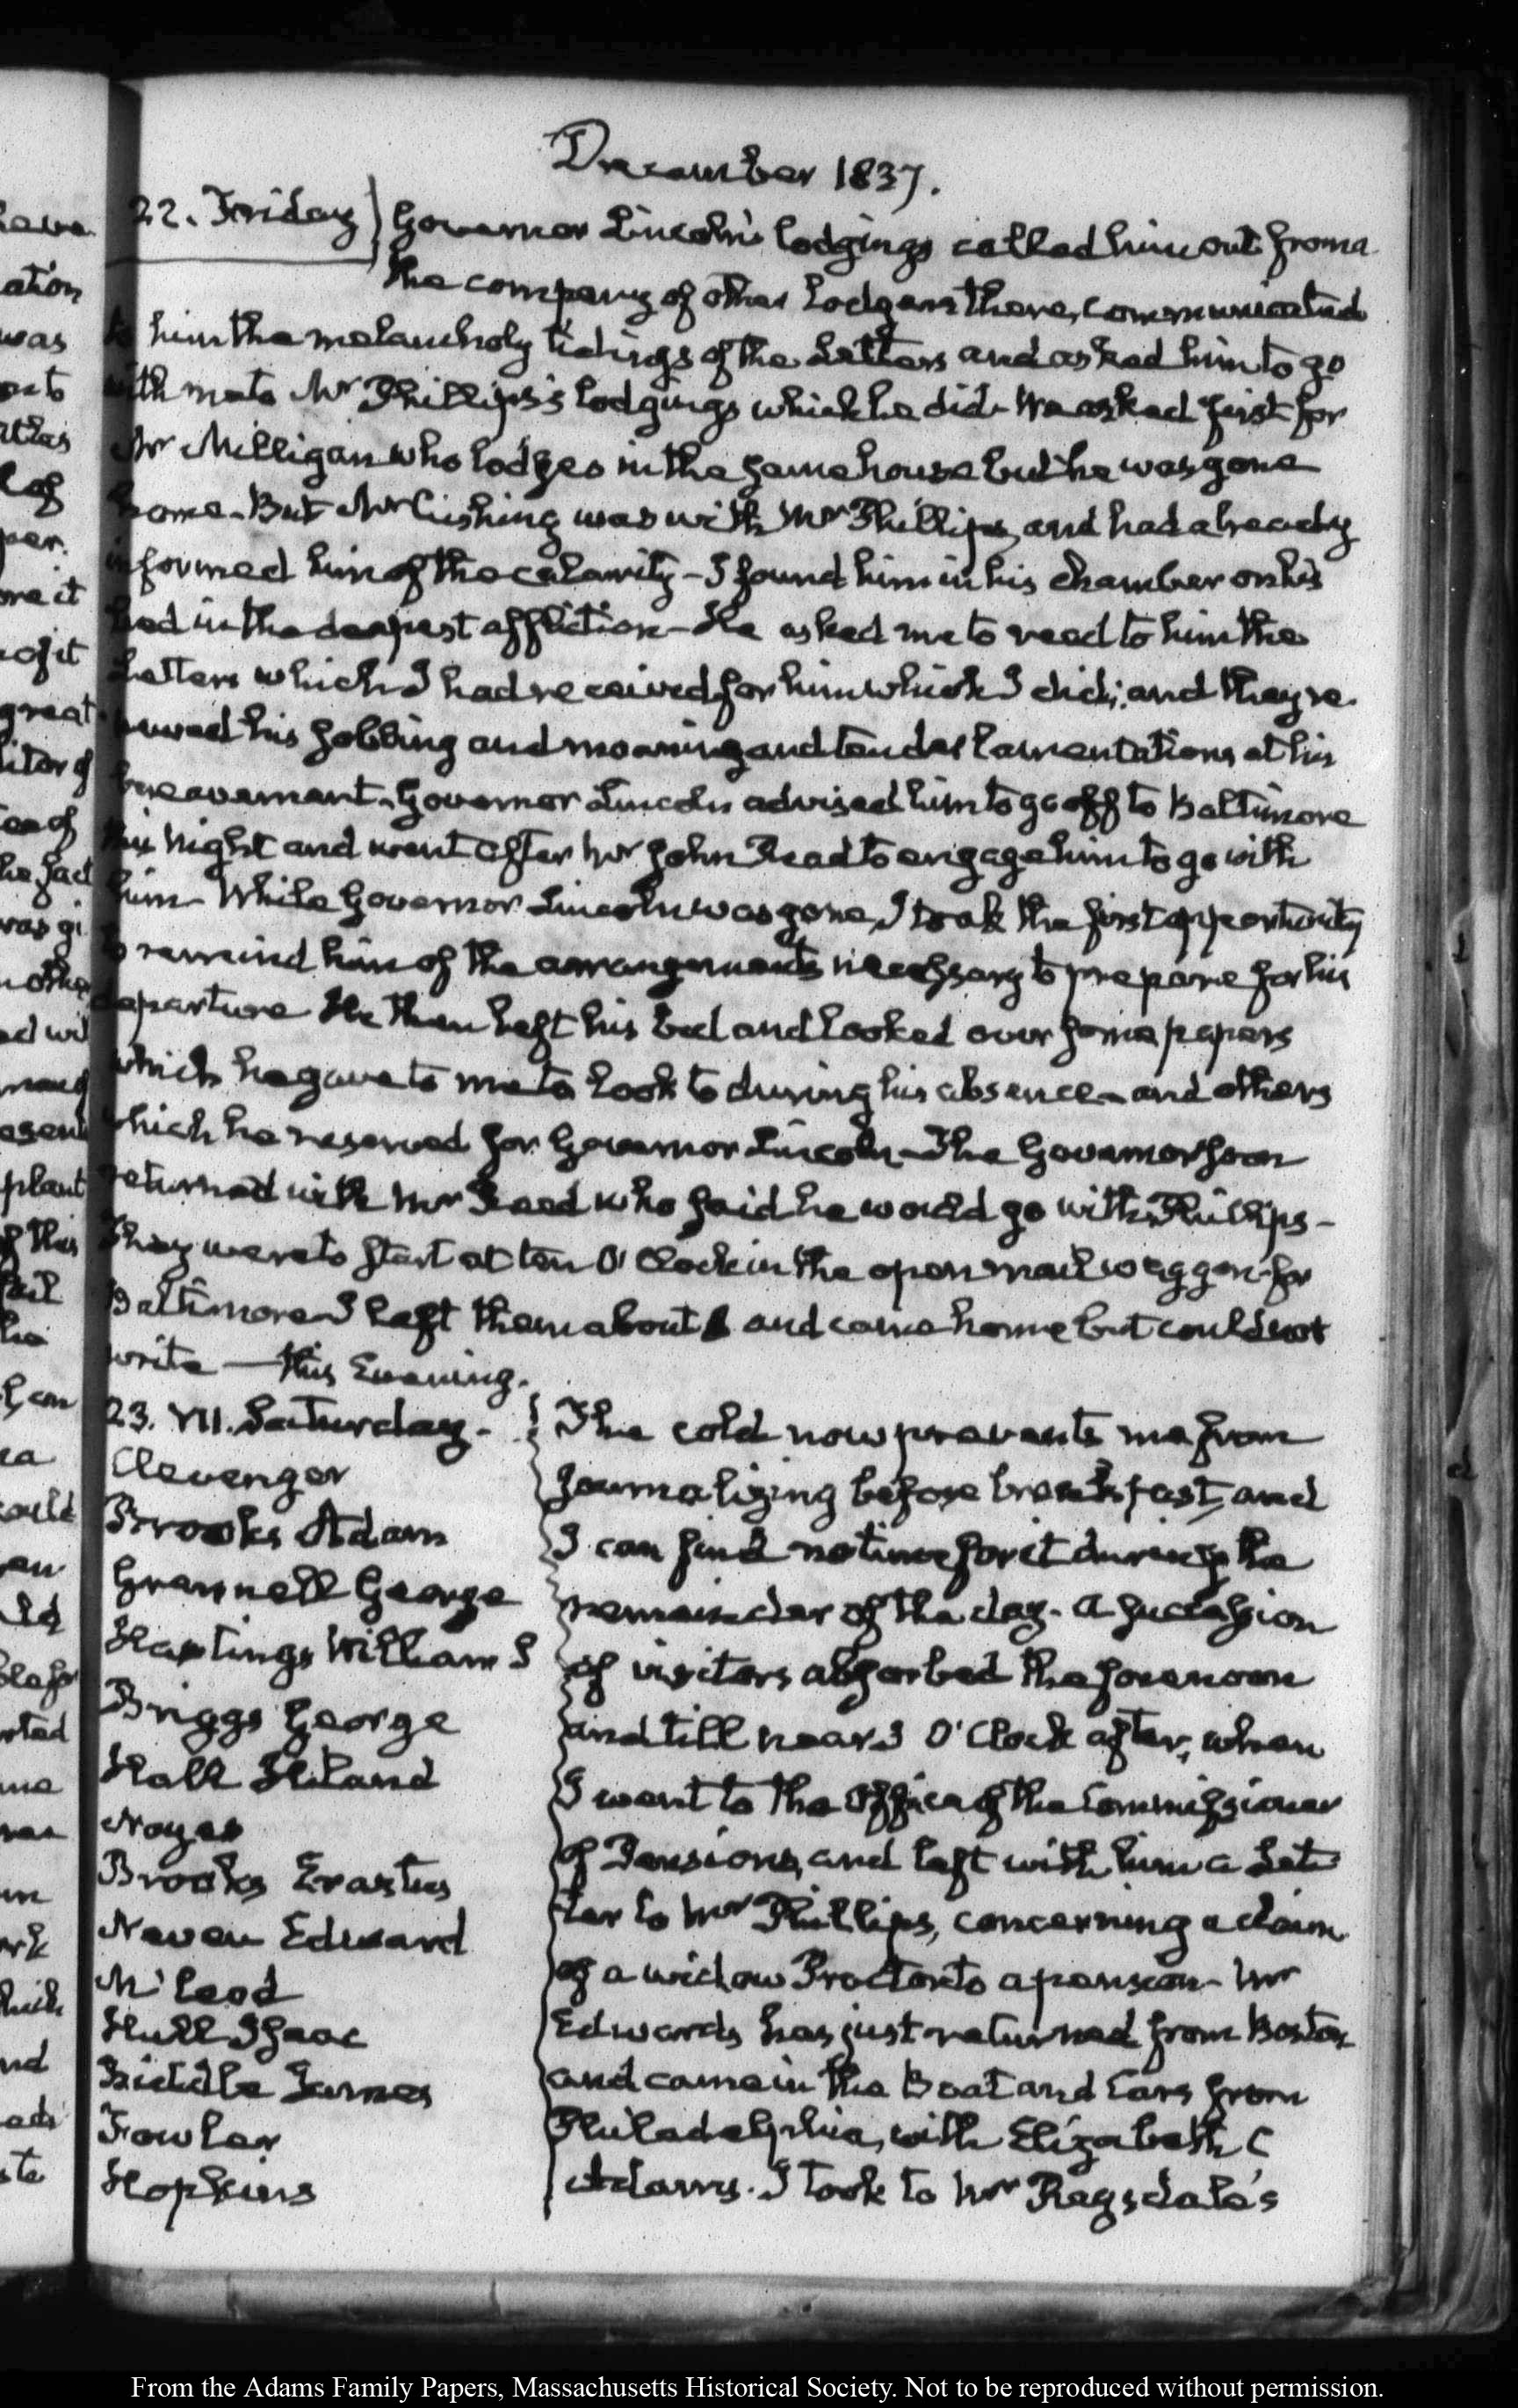 December 1837.
22. Friday} Governor Lincoln's lodgings called him out from a
the company of other Lodgers there, communicated
to him the melancholy tidings of the Letters and asked him to go
with me to Mr Phillips's lodgings which he did. We asked first for
Mr Milligan who lodges in the same house but he was gone
home. But Mr Cushing was with Mr Phillips, and had already
informed him of the calamity – I found him in his chamber on his
bed in the deepest affliction – He asked me to read to him the
Letters which I had received for him which I did; and they re-
newed his sobbing and moaning and tender lamentations at his
bereavement. Governor Lincoln advised him to go off to Baltimore
this night and went after Mr John Read to engage him to go with
him – While Governor Lincoln was gone, I took the first opportunity
to remind him of the arrangements necessary to prepare for his
departure He then left his bed and looked over some papers
which he gave to me to look to during his absence – and others
which he reserved for Governor Lincoln – The Governor soon
returned with Mr Read who said he would go with Phillips –
They were to start at ten O'Clock in the open mail waggon for
Baltimore I left them about 8 and came home but could not
write — this Evening.
23. VII. Saturday.
Clevenger
Brooks Adam
Grennell George
Hastings William S
Briggs George
Hall Hiland
Noyes
Brooks Erastus
Neven Edward
McLeod
Hull Isaac
Biddle James
Fowler
Hopkins
The cold now prevents me from
journalizing before breakfast, and
I can find no time for it during the
remainder of the day. A succession
of visiters absorbed the forenoon
and till near 3 O'Clock after, when
I went to the Office of the Commissioner
of Pensions, and left with him a Let-
ter to Mr Phillips, concerning a claim
of a widow Proctor to a pension – Mr
Edwards has just returned from Boston
and came in the Boat and Cars from
Philadelphia, with Elizabeth C
Adams. I took to Mr Ragsdale's
From the Adams Family Papers, Massachusetts Historical Society. Not to be reproduced without permission.